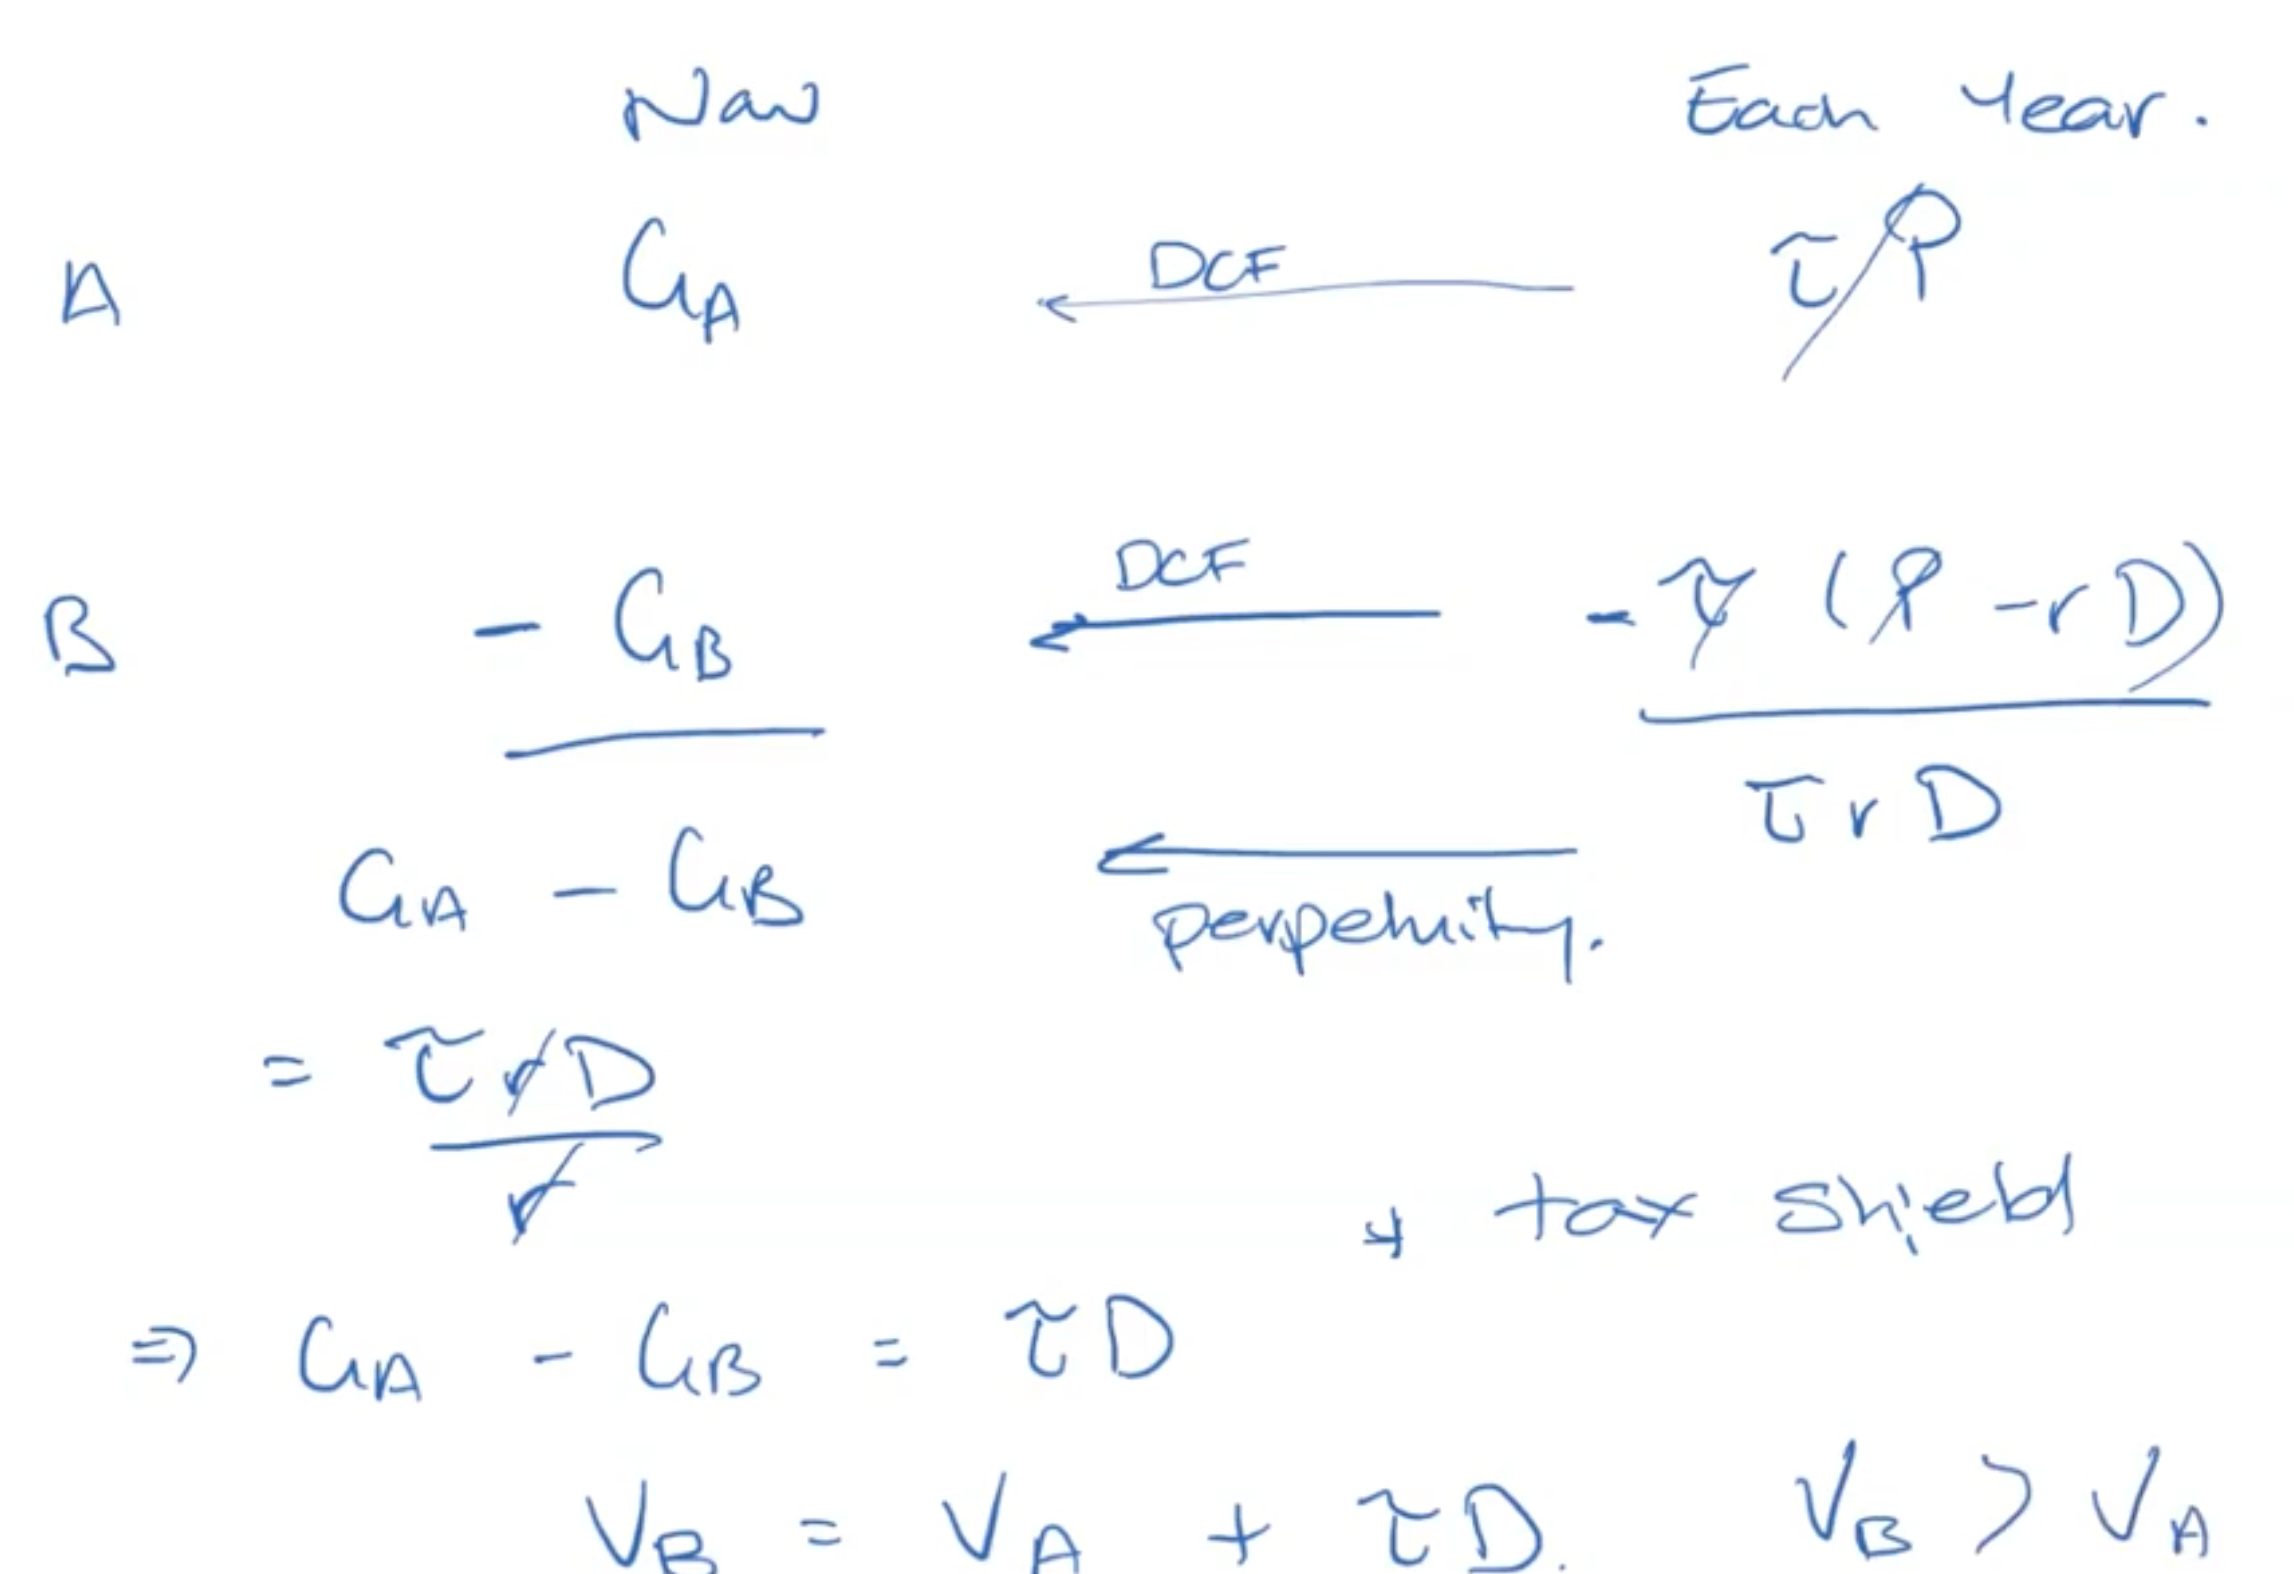 Now Each Year.
A G_A DCF τP
B - G_B DCF -τ(P - rD)
τrD
G_A - G_B perpetuity.
= τrD
r
* tax shield
⇒ G_A - G_B = τD
V_B = V_A + τD. V_B > V_A